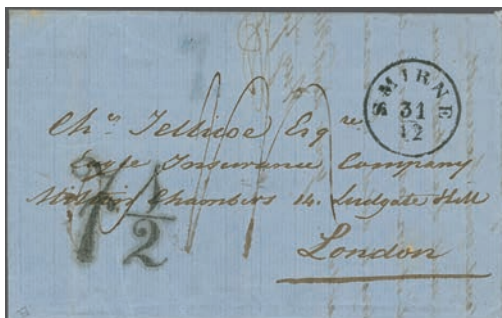 SMIRNE
31
12
Esq^re
Eagle Insurance Company
Chambers 14. Ludgate Hill
London
7 1/2